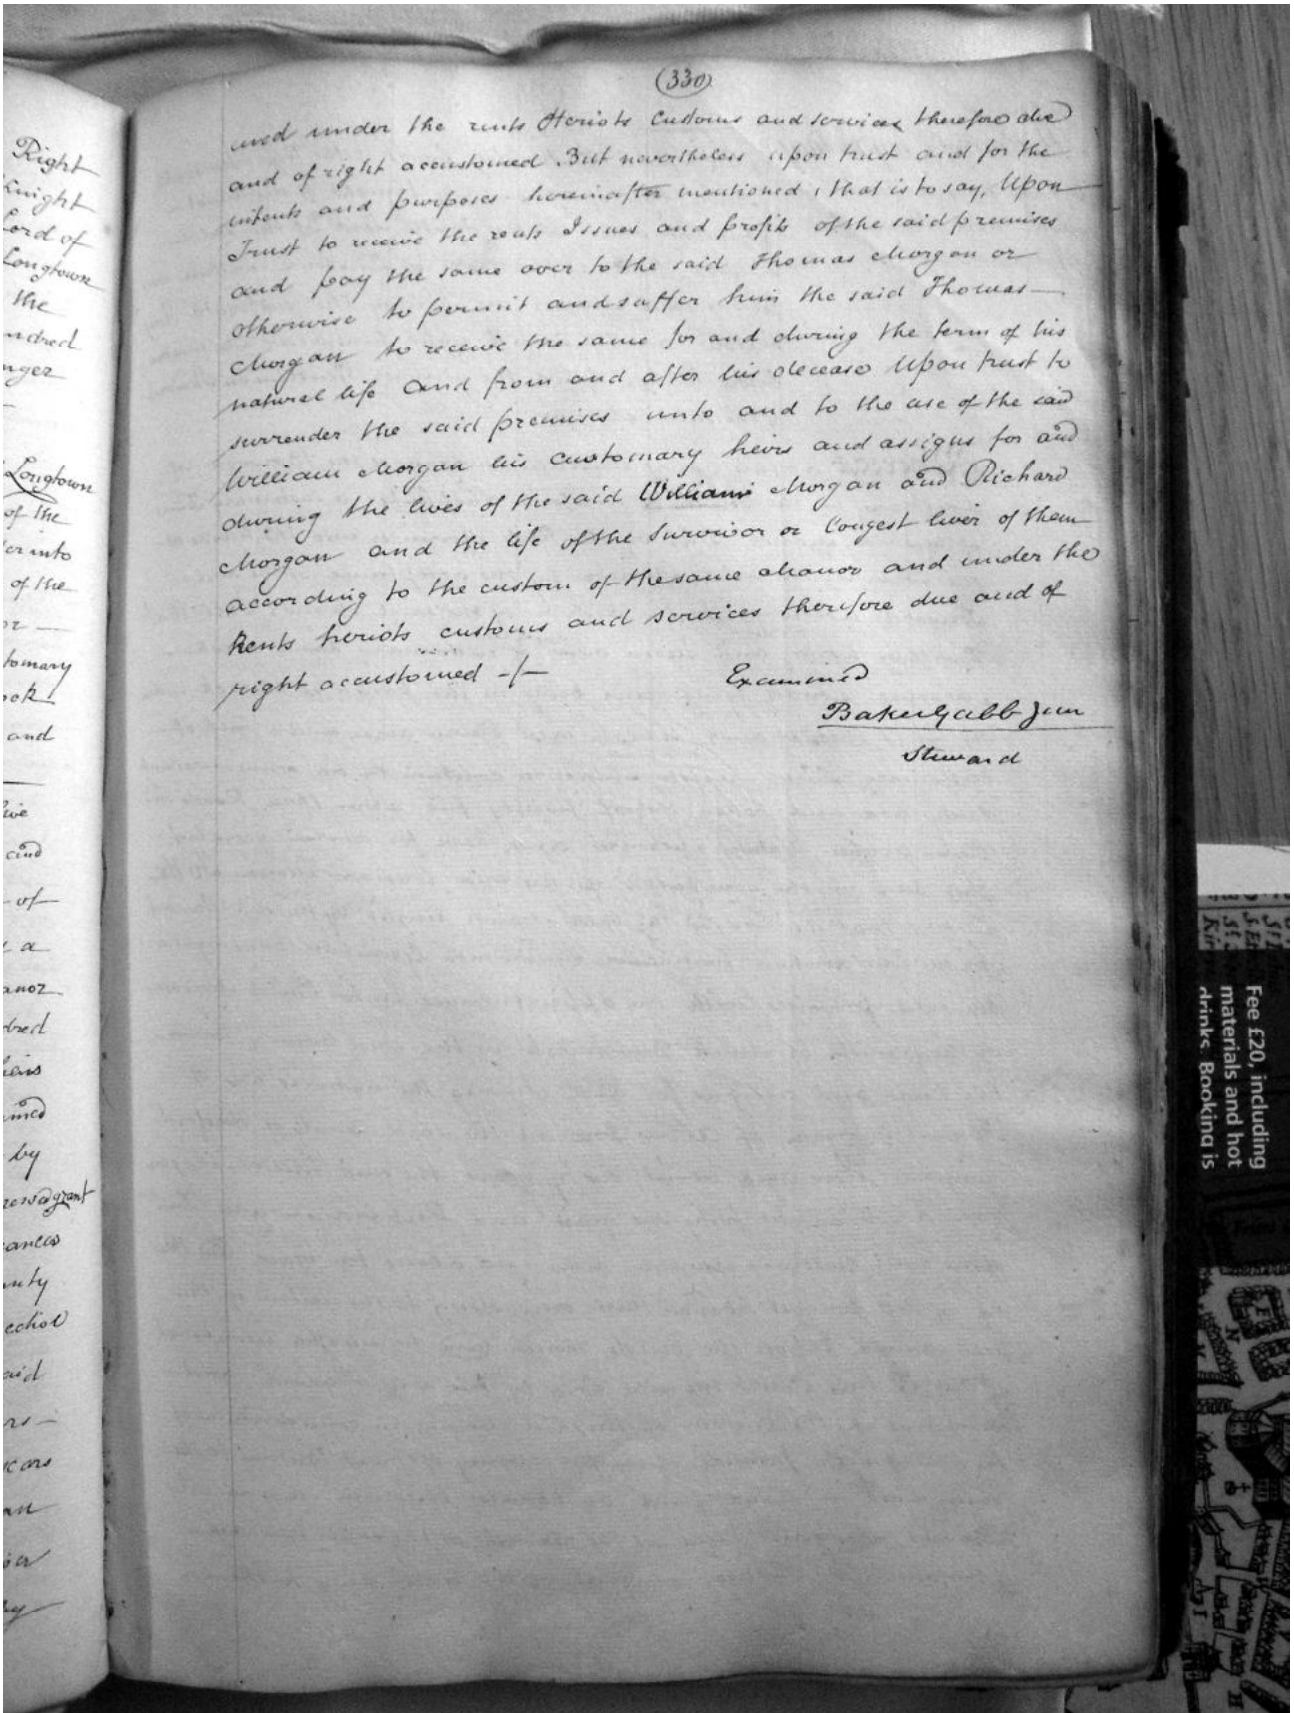 Right
Knight
Lord of
Longtown
the
Longtown
of the
into
of the
tomary
and
and
of
a
by
grant
(330)
under the rents Heriots Customs and services therefore due
and of right accustomed But nevertheless upon trust and for the
intents and purposes hereinafter mentioned, that is to say, Upon
Trust to receive the rents Issues and profits of the said premises
and pay the same over to the said Thomas Morgan or
otherwise to permit and suffer him the said Thomas —
Morgan to receive the same for and during the term of his
natural life And from and after his decease Upon trust to
surrender the said premises unto and to the use of the said
William Morgan his customary heirs and assigns for and
during the lives of the said William Morgan and Richard
Morgan and the life of the Survivor or longest liver of them
according to the custom of the same Manor and under the
Rents heriots customs and services therefore due and of
right accustomed -/-
Examined
Baker Gabb Jun
Steward
Fee £20, including
materials and hot
drinks. Booking is